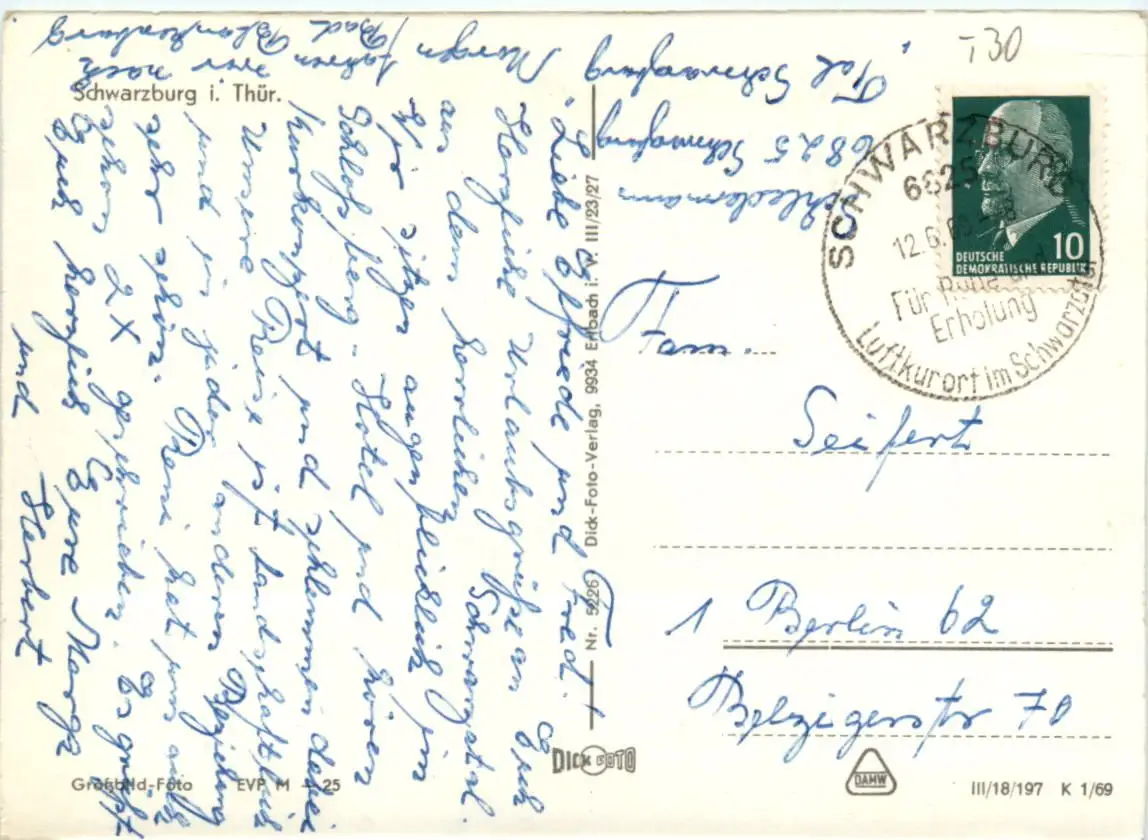 Schwarzburg i. Thür.
Liebe Elfriede und Fred!
Herzliche Urlaubsgrüße an Euch
aus dem herrlichen Schwarzatal.
Wir sitzen augenblicklich im
Schloßberg-Hotel und hören
Kurkonzert und schlemmen dabei
Unsere Reise ist landschaftlich
und in jeder anderen Beziehung
sehr schön. Reni hat uns auch
schon 2x geschrieben. Es grüßt
Euch herzlich Eure Marga
und Herbert
Morgen fahren wir nach
Bad Blankenburg
6825 Schwarzburg
Tal Schwarzburg
T30
SCHWARZBURG
6825
12.6.69
Für Ruhe und
Erholung
Luftkurort im Schwarzatal
10
DEUTSCHE
DEMOKRATISCHE REPUBLIK
Fam.
Seifert
1 Berlin 62
Belzigerstr 70
Nr. 5226 Dick-Foto-Verlag, 9934 Erlbach i. V. III/23/27
DICK FOTO
Großbild-Foto EVP M -,25
DAMW
III/18/197 K 1/69